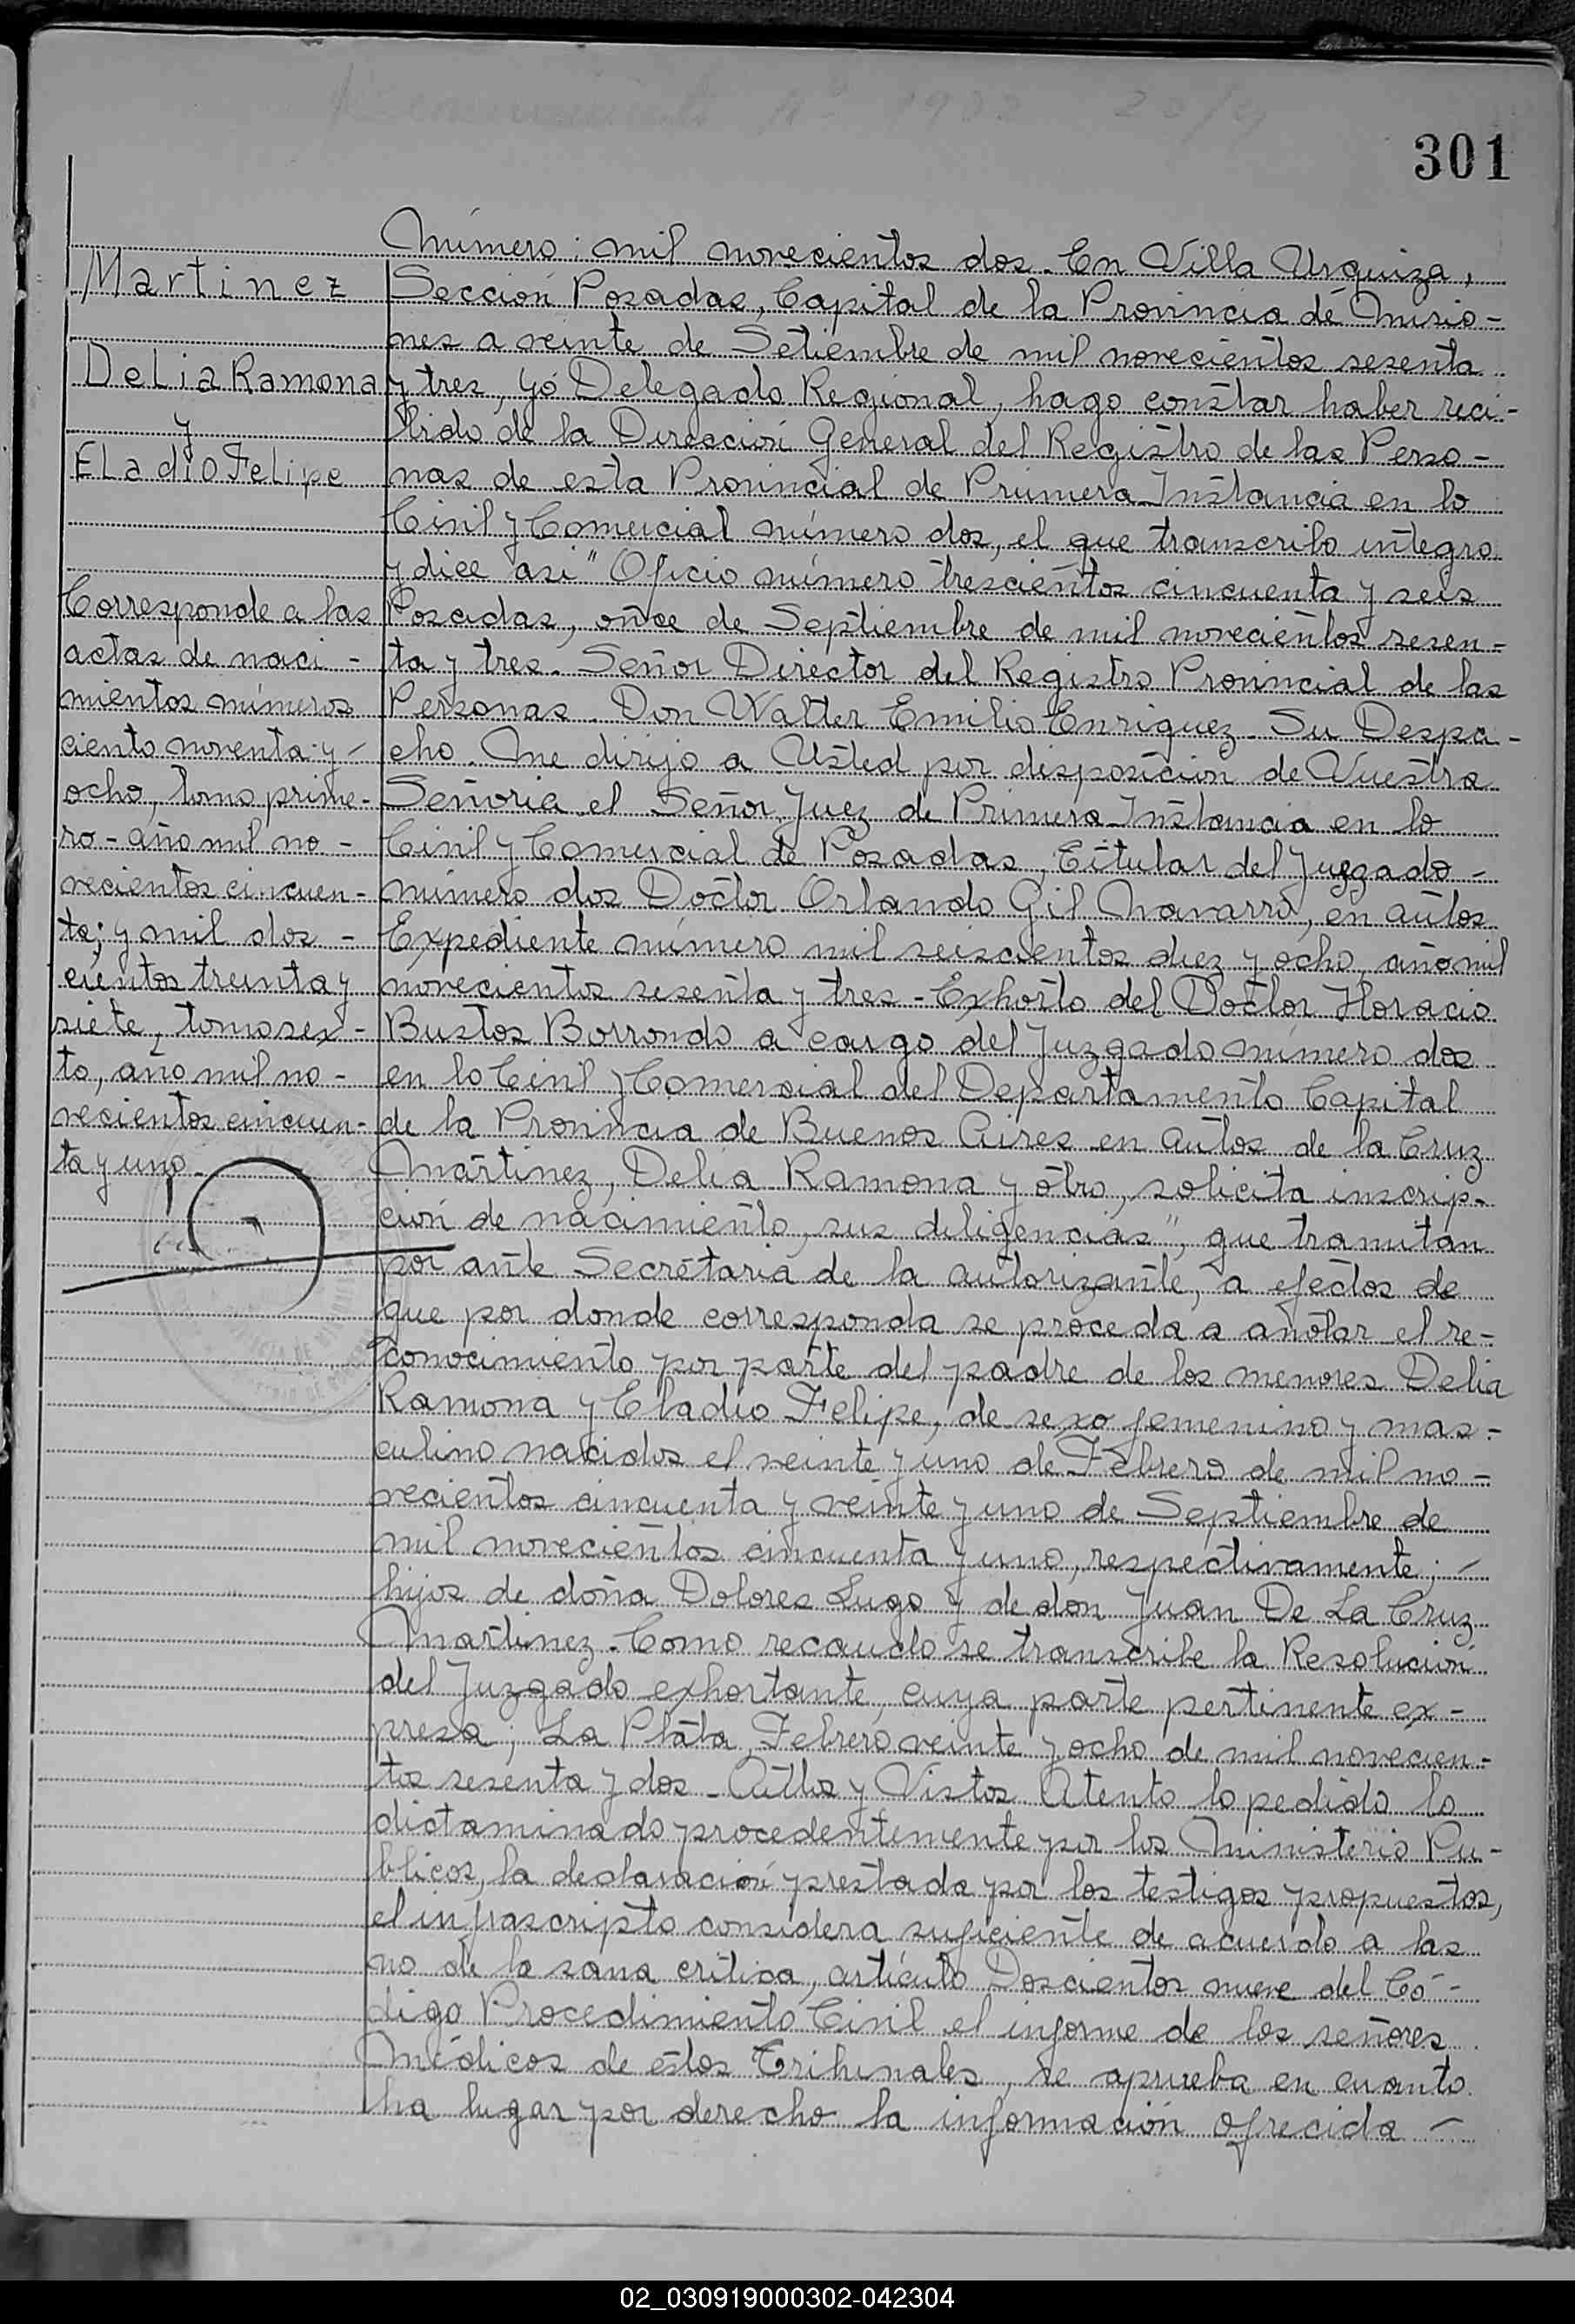 301
Martinez
Delia Ramona
y
Eladio Felipe
Corresponde a las
actas de naci-
mientos números
ciento noventa y-
ocho, tomo prime-
ro-año mil no-
vecientos cincuen-
ta; y mil dos-
cientos treinta y
siete, tomo sex-
to, año mil no-
vecientos cincuen-
ta y uno.
Número: mil novecientos dos. En Villa Urquiza,
Sección Posadas, Capital de la Provincia de Misio-
nes a veinte de Setiembre de mil novecientos sesenta
y tres, yó Delegado Regional, hago constar haber reci-
bido de la Dirección General del Registro de las Perso-
nas de esta Provincial de Primera Instancia en lo
Civil y Comercial número dos, el que transcribo integro
y dice asi "Oficio número trescientos cincuenta y seis
Posadas, once de Septiembre de mil novecientos sesen-
ta y tres. Señor Director del Registro Provincial de las
Personas. Don Walter Emilio Enriquez. Su Despa-
cho. Me dirijo a Usted por disposición de Vuestra
Señoria el Señor Juez de Primera Instancia en lo
Civil y Comercial de Posadas, Titular del Juzgado-
número dos Doctor Orlando Gil Navarro, en autos
Expediente número mil seiscientos diez y ocho, año mil
novecientos sesenta y tres-Exhorto del Doctor Horacio
Bustos Borrondo a cargo del Juzgado número dos
en lo Civil y Comercial del Departamento Capital
de la Provincia de Buenos Aires en autos de la Cruz
Martinez, Delia Ramona y otro, solicita inscrip-
ción de nacimiento, sus deligencias", que tramitan
por ante Secretaria de la autorizante, a efectos de
que por donde corresponda se proceda a anotar el re-
conocimiento por parte del padre de los menores Delia
Ramona y Eladio Felipe, de sexo femenino y mas-
culino nacidos el veinte y uno de Febrero de mil no-
vecientos cincuenta y veinte y uno de Septiembre de
mil novecientos cincuenta y uno, respectivamente;-
hijos de doña Dolores Lugo y de don Juan De La Cruz
Martinez. Como recaudo se transcribe la Resolución
del Juzgado exhortante, cuya parte pertinente ex-
presa; La Plata, Febrero veinte y ocho de mil novecien-
tos sesenta y dos-Autos y Vistos Atento lo pedido lo
dictaminado procedentemente por los Ministerio Pu-
blicos, la declaración prestada por los testigos propuestos,
el infrascripto considera suficiente de acuerdo a las
no de la sana critica, artículo Doscientos nueve del Có-
digo Procedimiento Civil el informe de los señores
Médicos de estos Tribunales, se aprueba en cuanto
ha lugar por derecho la información ofrecida-
02_030919000302-042304